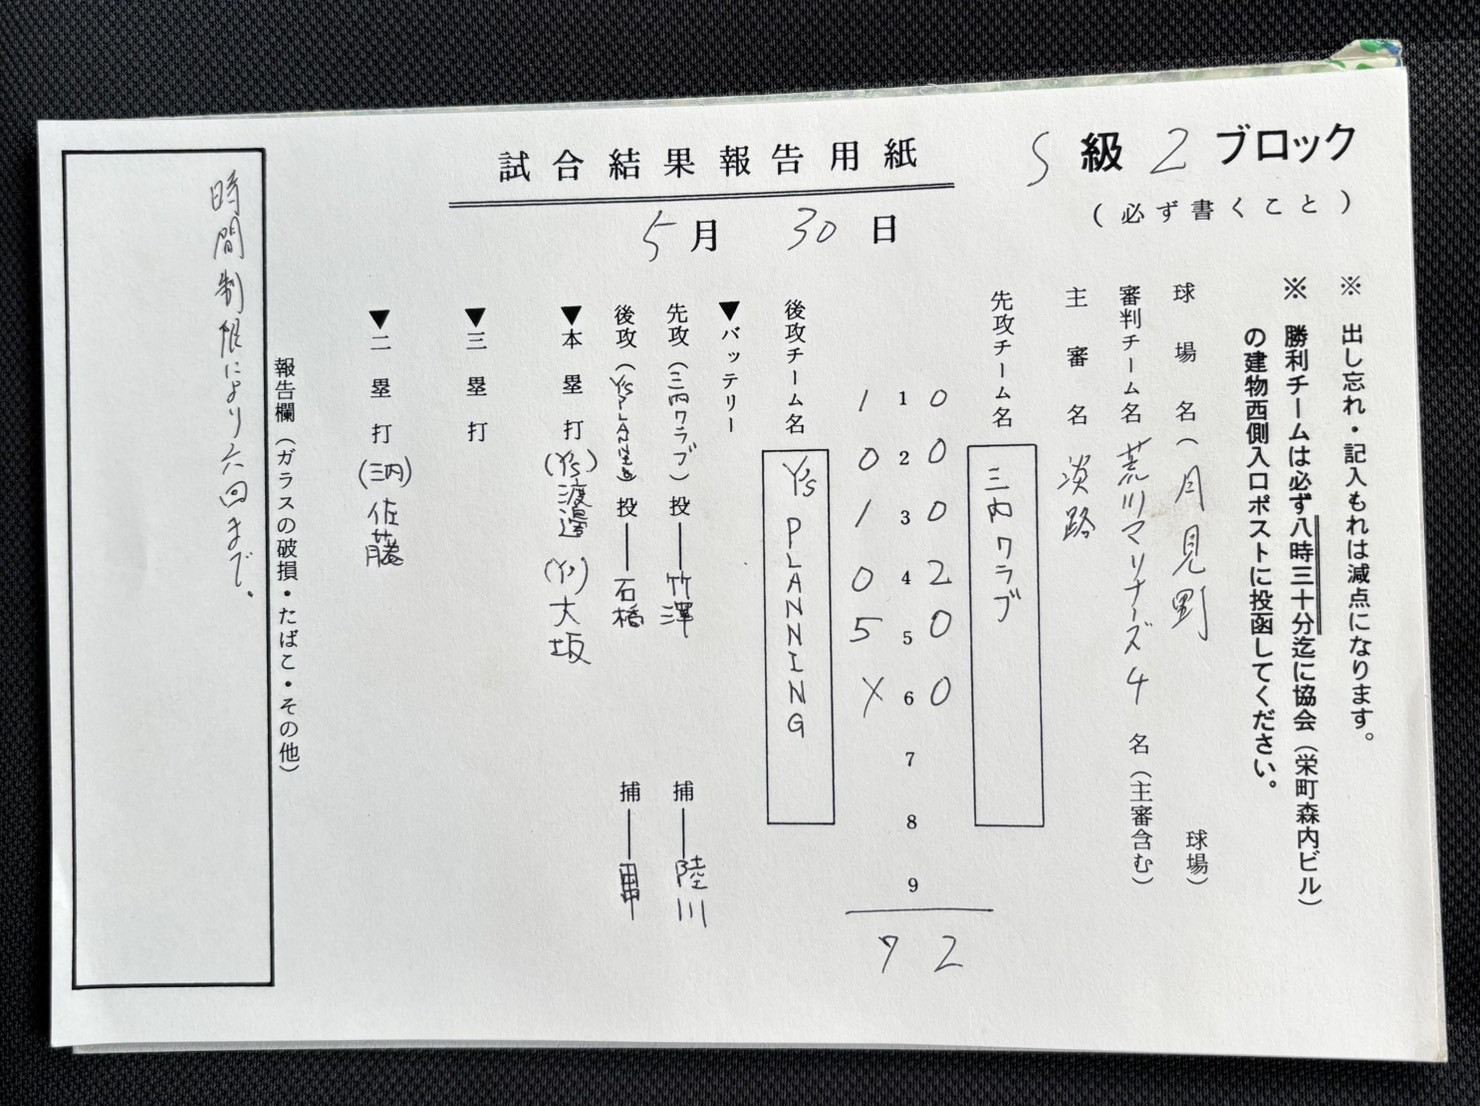 S級2ブロック
(必ず書くこと)
試合結果報告用紙
5月30日
※ 出し忘れ・記入もれは減点になります。
※ 勝利チームは必ず八時三十分迄に協会(栄町森内ビル)
の建物西側入口ポストに投函してください。
球場名(月見野球場)
審判チーム名 荒川マリナーズ 4名(主審含む)
主審名 淡路
先攻チーム名 三内クラブ
0 0 0 2 0 0 2
1 2 3 4 5 6 7 8 9
1 0 1 0 5 X 7
後攻チーム名 Y's PLANNING
▼バッテリー
先攻(三内クラブ)投―竹澤 捕―陸川
後攻(Y's PLANNING)投―石橋 捕―
▼本塁打(Y's)渡邉(Y's)大坂
▼三塁打
▼二塁打(三内)佐藤
報告欄(ガラスの破損・たばこ・その他)
時間制限により六回まで.